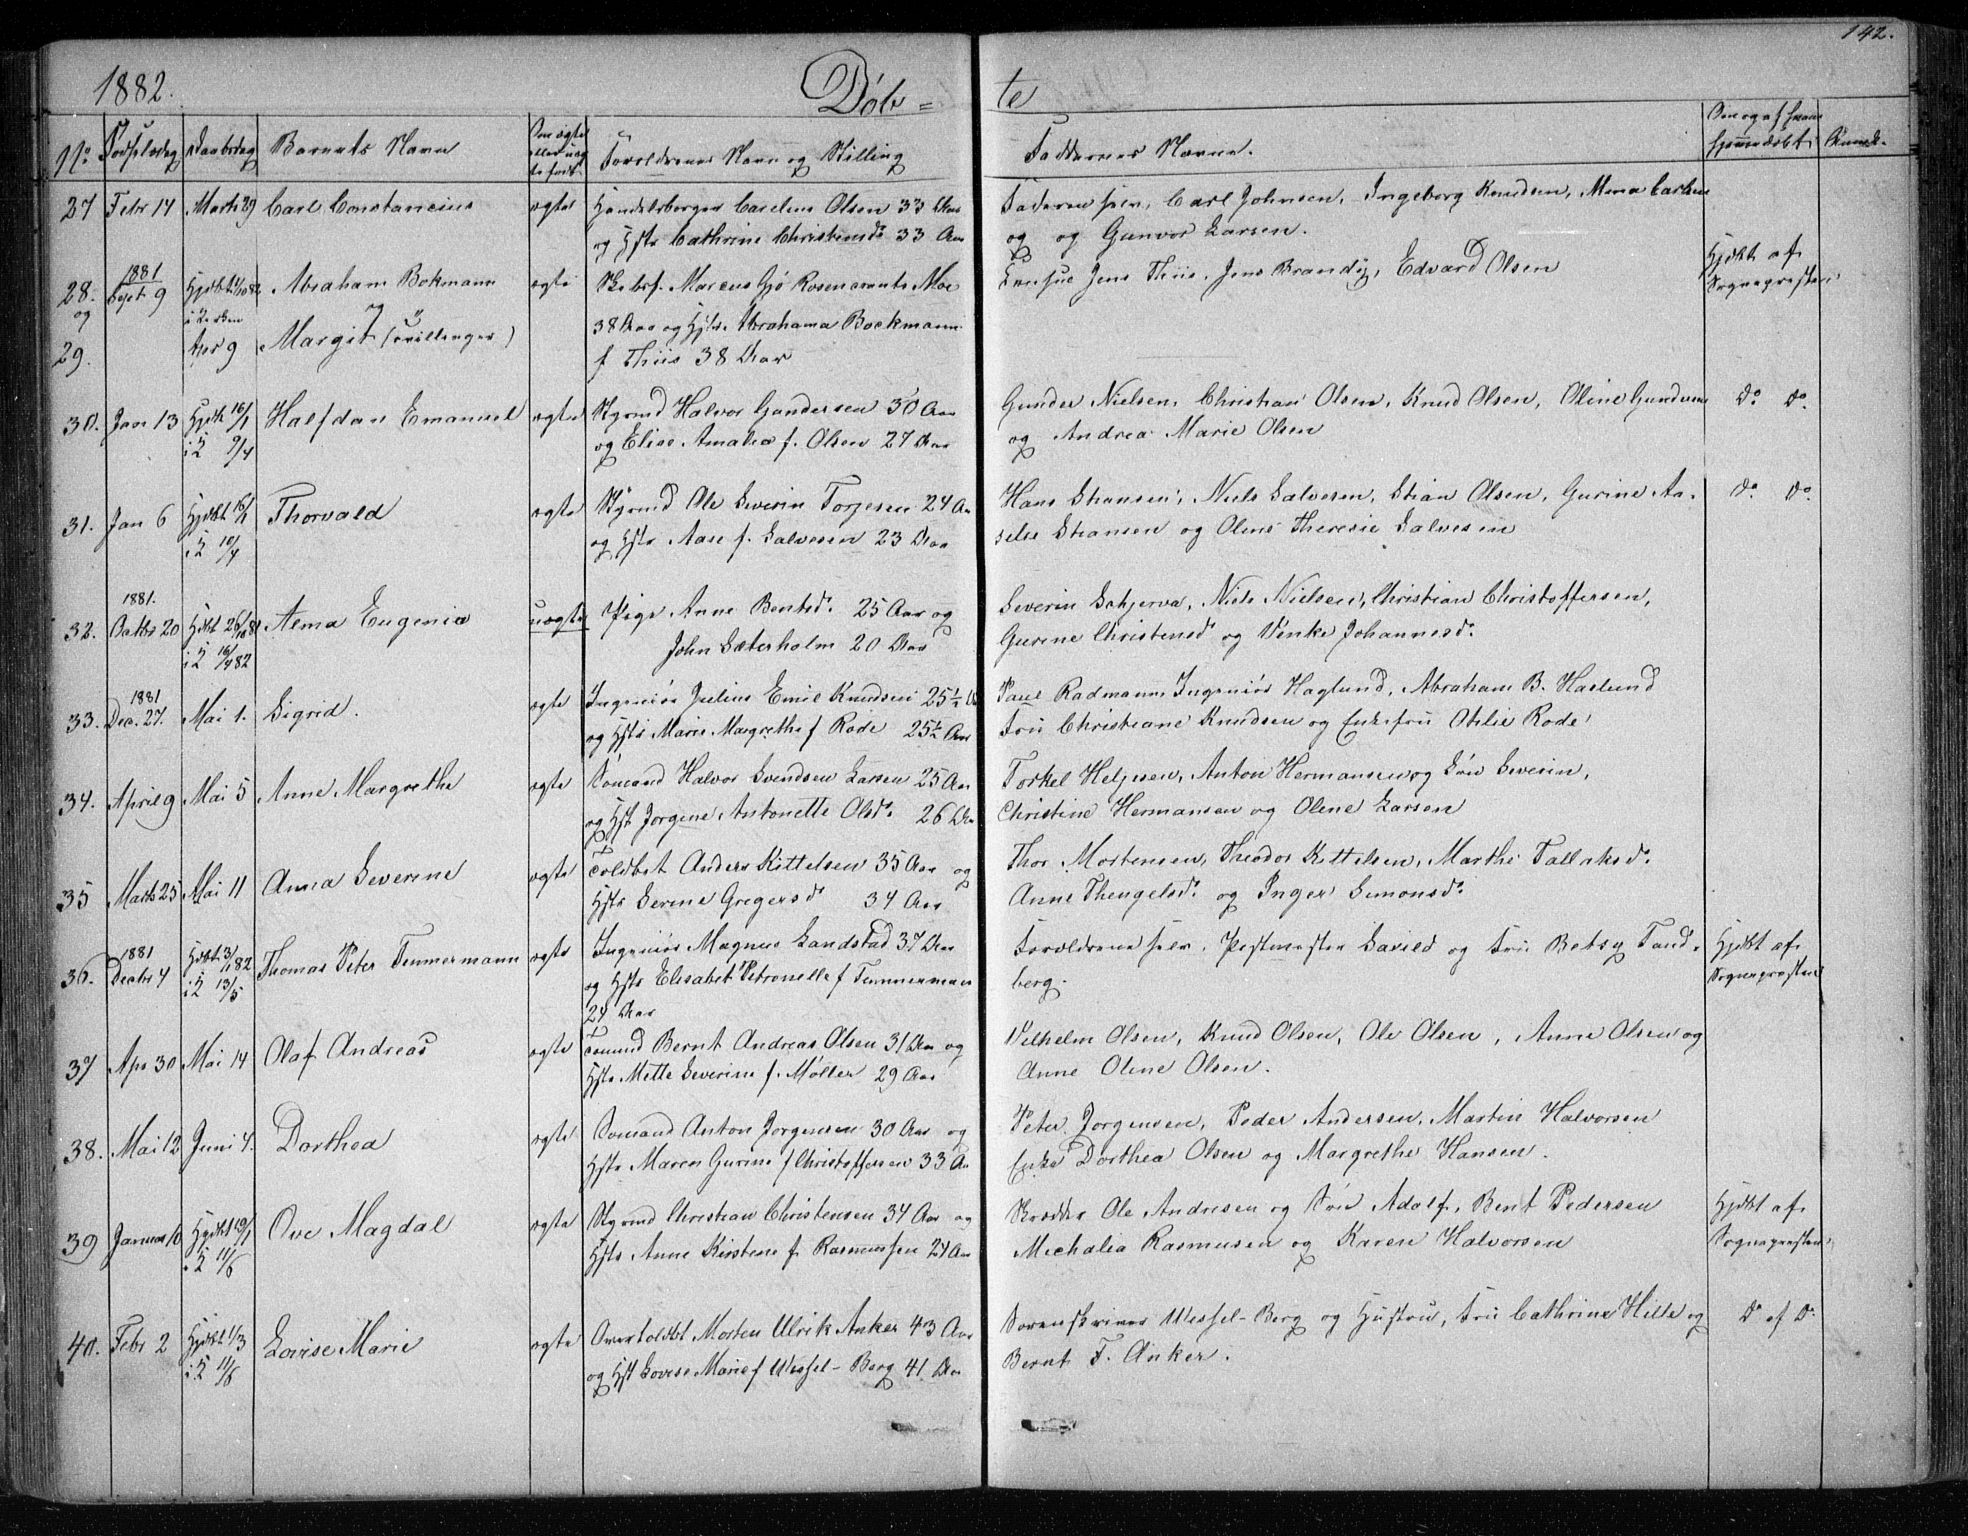 142.
1882.
Døb = te
No Fødselsdag Daabsdag Barnets Navn Om ægte eller uægte født Forældrenes Navn og Stilling Faddernes Navne. Om og af hvem hjemmedøbt Anmk.
27 Febr 14 Marts 29 Carl Constancius ægte Handelsborger Carelius Olsen 33 Aar Faderen selv, Carl Johnsen, Ingeborg Knudsen, Mina Carlsen
og Hstr Cathrine Christensd. 33 Aar og Gunvor Larsen.
28. 1881 Sept. 9 Hjdbt Abraham Bokmann ægte Skbrf. Marcus Gjø Rosencrants Moe Jens Thiis, Jens Brandij, Edvard Olsen Hjdbt af
og i Kirken og 38 Aar og Hstr. Abrahama Bockmann Sognepræsten
29. Apr 9 Margit (Tvillinger) f Thiis 38 Aar
30. Jan 13 Hjdbt 16/1 Halfdan Emanuel ægte Styrmd Halvor Gundersen 30 Aar Gunder Nielsen, Christian Olsen, Knud Olsen, Oline Gundersen Do Do
i K 9/4 og Elise Amalia f. Olsen 27 Aar og Andrea Marie Olsen
31. Jan 6 Hjdbt 16/1 Thorvald ægte Styrmd Ole Severin Torjesen 24 Aar Hans Shansen, Niels Salvesen, Stian Olsen, Gurine Aa- Do Do
i K 10/4 og Hstr Aase f. Salvesen 23 Aar Shansen og Oline Theresie Salvesen
1881.
32. Octbr 20 Hjdbt 26/10 81 Alma Eugenia uægte Pige Anne Bentsd. 25 Aar og Severin Schjerva, Niels Nielsen, Christian Christoffersen,
i K 16/4 82 John Sæterholm 20 Aar Gurine Christensd. og Venke Johannesd.
1881
33. Dec. 27. Mai 1. Sigrid. ægte Ingeniør Julius Emil Knudsen 25½ Aar Paul Radmann Ingeniør Haglund, Abraham B. Haslund
og Hstr Marie Margrethe f Rode 25½ Aar Fru Christiane Knudsen og Enkefru Otilie Rode
34. April 9 Mai 5 Anne Margrethe ægte Sømand Halvor Svendsen Larsen 25 Aar Torkel Heljesen, Anton Hermansen og Søn Severin,
og Hst Jørgine Antonette Olsd. 26 Aar Christine Hermansen og Oline Larsen
35 Marts 25 Mai 11 Anna Severine ægte Toldbet Anders Kittelsen 35 Aar og Thor Mortensen, Theodor Kittelsen, Marthe Tallaksd.
Hstr Serine Gregersd 34 Aar Anne Thengelsd. og Inger Simonsd.
1881
36. Decbr 4 Hjdbt 3/1 82 Thomas Peter Timmermann ægte Ingeniør Magnus Landstad 37 Aar Forældrene selv, Postmester Savild og Fru Betsy Tand- Hjdbt af
i K 13/5 og Hstr Elisabet Petronelle f Timmermann berg. Sognepræsten
24 Aar
37 Apr 30 Mai 14 Olaf Andreas ægte Tømmd Bernt Andreas Olsen 31 Aar og Vilhelm Olsen, Knud Olsen, Ole Olsen, Anne Olsen og
Hstr Mette Severine f. Møller 29 Aar Anne Oline Olsen.
38. Mai 12 Juni 4. Dorthea ægte Sømand Anton Jørgensen 30 Aar og Peter Jørgensen, Peder Andersen, Martin Halvorsen
Hstr Maren Gurine f Christoffersen 33 Aar Enke Dorthea Olsen og Margrethe Hansen.
39 Januar 10 Hjdbt 29/1 Ove Magdal ægte Styrmd Christian Christensen 34 Aar og Skrædder Ole Andresen og Søn Adolf, Bent Pedersen Hjdbt af
i K 11/6 Hstr Anne Kirstine f. Rasmussen 24 Aar Michalia Rasmusen og Karen Halvorsen Sognepræsten
40. Febr 2 Hjdbt 1/3 Lovise Marie ægte Overtoldbt Morten Ulrik Anker 43 Aar Sorenskriver Wessel-Berg og Hustru, Fru Cathrine Hille og Do af Do
i K 11/6 og Hst Lovise Marie f Wessel-Berg 41 Aar Bernt F. Anker.